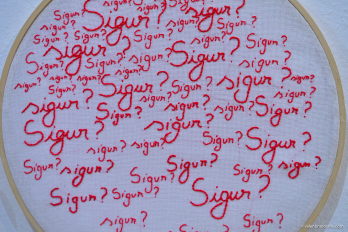 sigur? sigur?
Sigur? Sigur? sigur? Sigur?
sigur? Sigur? sigur?
Sigur? Sigur? Sigur? Sigur?
sigur? Sigur?
Sigur? sigur? sigur? Sigur? sigur?
sigur? sigur? sigur? sigur? sigur? sigur?
Sigur? Sigur? Sigur? sigur?
sigur? sigur? sigur? sigur? Sigur?
Sigur?
Sigur? sigur?
sigur? sigur? Sigur? Sigur?
Sigur? sigur? Sigur? Sigur? sigur?
Sigur?
Sigur? Sigur? Sigur?
sigur? Sigur?